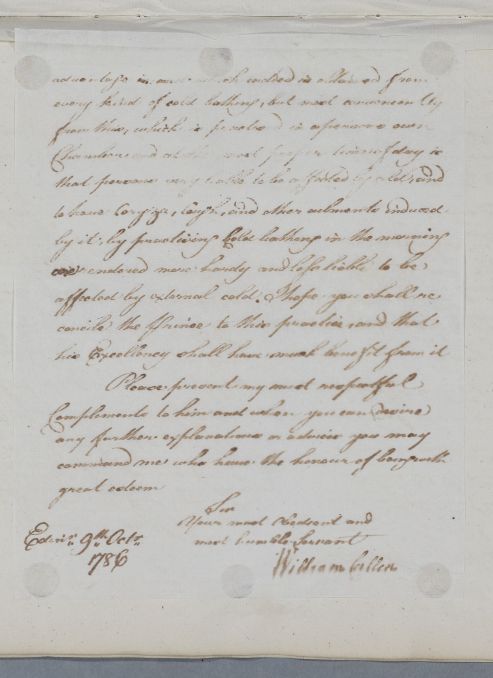 advantage in                 which indeed is obtained from
every kind of cold bathing, but most conveniently
from this, which is practised in a persons own
Chamber and at the most proper times of day is
that persons very liable to be affected by cold and
to have Coryza, Cough, and other ailments induced
by it, by practising Cold bathing in the morning
are rendered more hardy and less liable to be
affected by external cold. I hope you shall re
concile the Prince to this practice, and that
his Excellency shall have much benefit from it
Please present my most respectful
Compliments to him and when you can desire
any further explanations or advice you may
command me who have the honour of being with
great esteem
Sir
Your most Obedient and
most humble Servant
William Cullen
Edinr. 9th. Octr.
1786